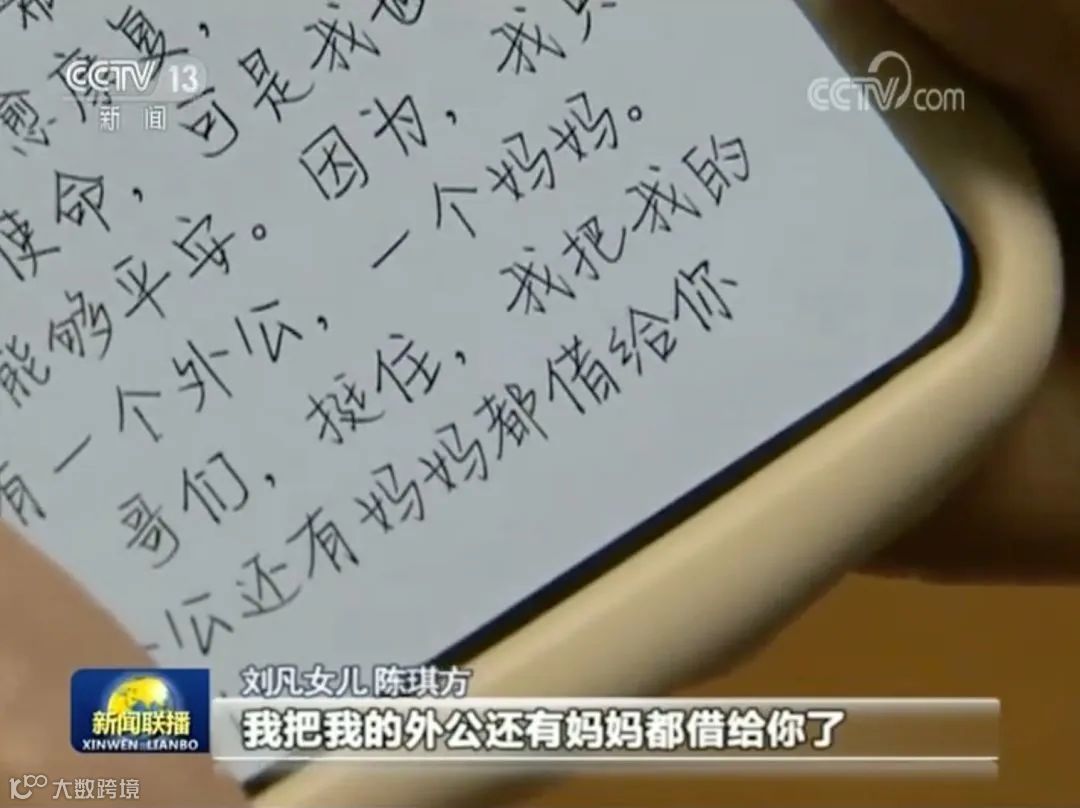 CCTV 13
新闻
CCTV.com
愈 康复，
使命，可是我也
能够平安。因为，我只
有一个外公，一个妈妈。
哥们，挺住，我把我的
外公还有妈妈都借给你
新闻联播
XINWEN LIANBO
刘凡女儿 陈琪方
我把我的外公还有妈妈都借给你了
大数跨境